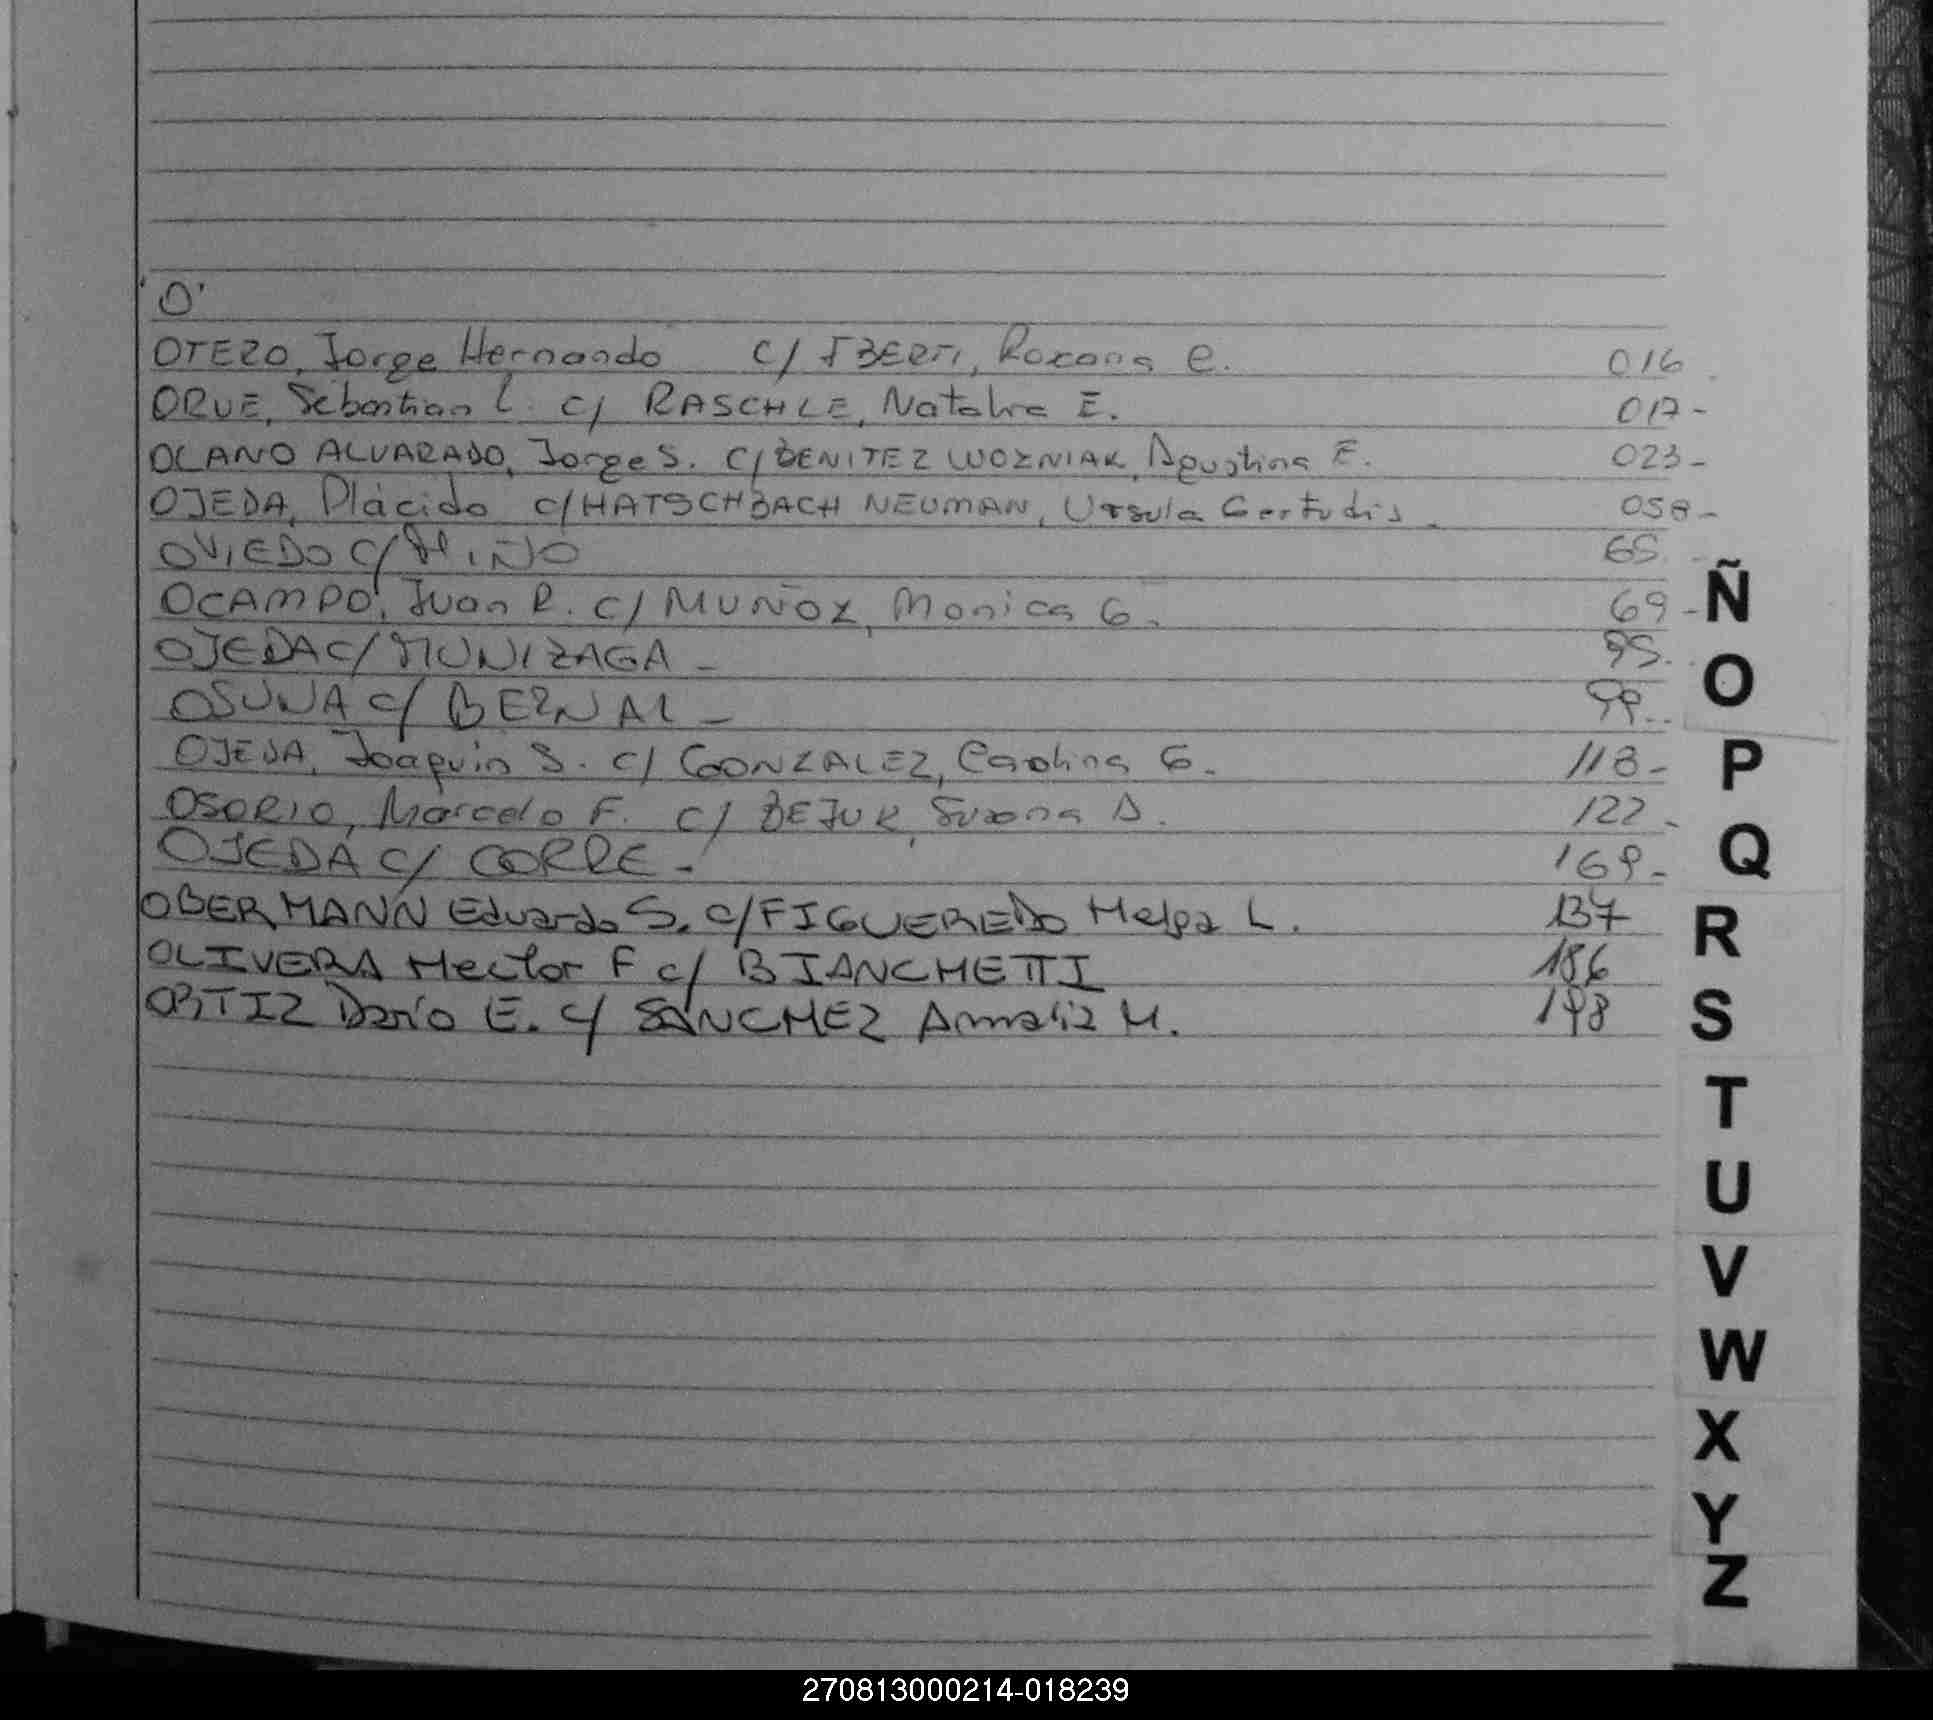 'O'
OTERO, Jorge Hernando c/ IBERTI, Roxana C. 016
ORUE, Sebastian L. c/ RASCHLE, Natalia E. 017-
OLANO ALVARADO, Jorge S. c/ BENITEZ WOZNIAK, Agustina E. 023-
OJEDA, Plácido c/ HATSCHBACH NEUMAN, Ursula Gertudis. 058-
OVIEDO c/ MIÑO 65.
OCAMPO, Juan R. c/ MUÑOZ, Monica G. 69-
OJEDA c/ MUNIZAGA - 95.
OSUNA c/ BERNAL - 99..
OJEDA, Joaquin S. c/ GONZALEZ, Carolina G. 118-
OSORIO, Marcelo F. c/ BEJUK, Susana D. 122-
OJEDA c/ CORRE - 169-
OBERMANN Eduardo S. c/ FIGUEREDO Helga L. 137
OLIVERA Hector F c/ BIANCHETTI 186
ORTIZ Dario E. c/ SANCHEZ Amalia M. 198
Ñ
O
P
Q
R
S
T
U
V
W
X
Y
Z
270813000214-018239